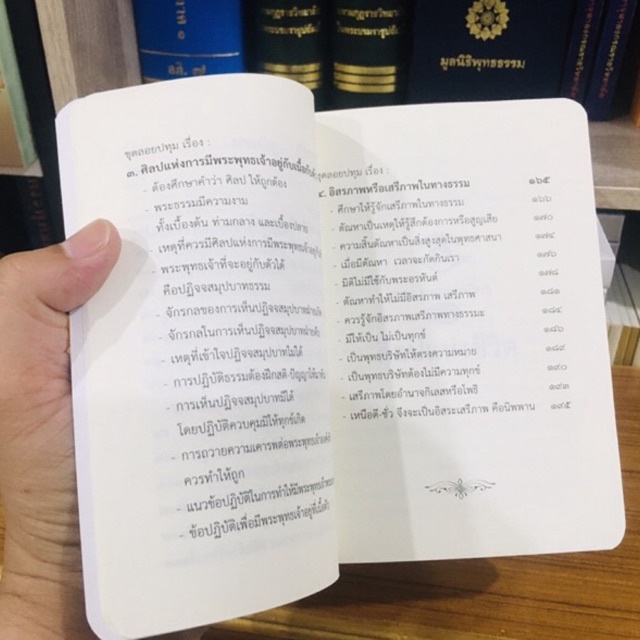 มูลนิธิพุทธธรรม
ชุดลอยปทุม เรื่อง :
๓. ศิลปแห่งการมีพระพุทธเจ้าอยู่กับเนื้อกับตัว
- ต้องศึกษาคำว่า ศิลป ให้ถูกต้อง
- พระธรรมมีความงาม
ทั้งเบื้องต้น ท่ามกลาง และเบื้องปลาย
- เหตุที่ควรมีศิลปแห่งการมีพระพุทธเจ้า
- พระพุทธเจ้าที่จะอยู่กับตัวได้
คือปฏิจจสมุปบาทธรรม
- จักรกลของการเห็นปฏิจจสมุปบาท
- จักรกลในการเห็นปฏิจจสมุปบาท
- เหตุที่เข้าใจปฏิจจสมุปบาทไม่ได้
- การปฏิบัติธรรมต้องฝึกสติ-ปัญญา
- การเห็นปฏิจจสมุปบาทมีได้
โดยปฏิบัติควบคุมมิให้ทุกข์เกิด
- การถวายความเคารพต่อพระพุทธเจ้า
ควรทำให้ถูก
- แนวข้อปฏิบัติในการทำให้มีพระพุทธเจ้า
- ข้อปฏิบัติเพื่อมีพระพุทธเจ้าอยู่ที่เนื้อที่ตัว
ชุดลอยปทุม เรื่อง :
๔. อิสรภาพหรือเสรีภาพในทางธรรม ๑๖๕
- ศึกษาให้รู้จักเสรีภาพในทางธรรม ๑๖๖
- ตัณหาเป็นเหตุให้รู้สึกต้องการหรือสูญเสีย ๑๗๐
- ความสิ้นตัณหาเป็นสิ่งสูงสุดในพุทธศาสนา ๑๗๔
- เมื่อมีตัณหา เวลาจะกัดกินเรา ๑๗๖
- มิติไม่มีใช้กับพระอรหันต์ ๑๗๘
- ตัณหาทำให้ไม่มีอิสรภาพ เสรีภาพ ๑๘๑
- ควรรู้จักอิสรภาพเสรีภาพทางธรรมะ ๑๘๔
- มีให้เป็น ไม่เป็นทุกข์ ๑๘๖
- เป็นพุทธบริษัทให้ตรงความหมาย ๑๘๙
- เป็นพุทธบริษัทต้องไม่มีความทุกข์ ๑๙๐
- เสรีภาพโดยอำนาจกิเลสหรือโพธิ ๑๙๓
- เหนือดี-ชั่ว จึงจะเป็นอิสระเสรีภาพ คือนิพพาน ๑๙๕